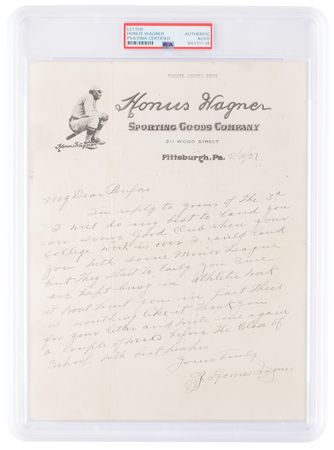 LETTER
HONUS WAGNER
PSA/DNA CERTIFIED
AUTHENTIC
AUTO
PSA
Honus Wagner
Sporting Goods Company
211 WOOD STREET
Honus Wagner
Pittsburgh, Pa.
My Dear
In reply to yours of the 3rd
I will do my best to land you
on some Good Club when your
College work is over I could land
you with some Minor League
but they start to Early you
are kept busy in athletic work
it wont hurt you in fact there
is nothing like it Thank you
for your letter and write me again
a couple of weeks before the Close of
School with best wishes
Yours Truly
J. Honus Wagner